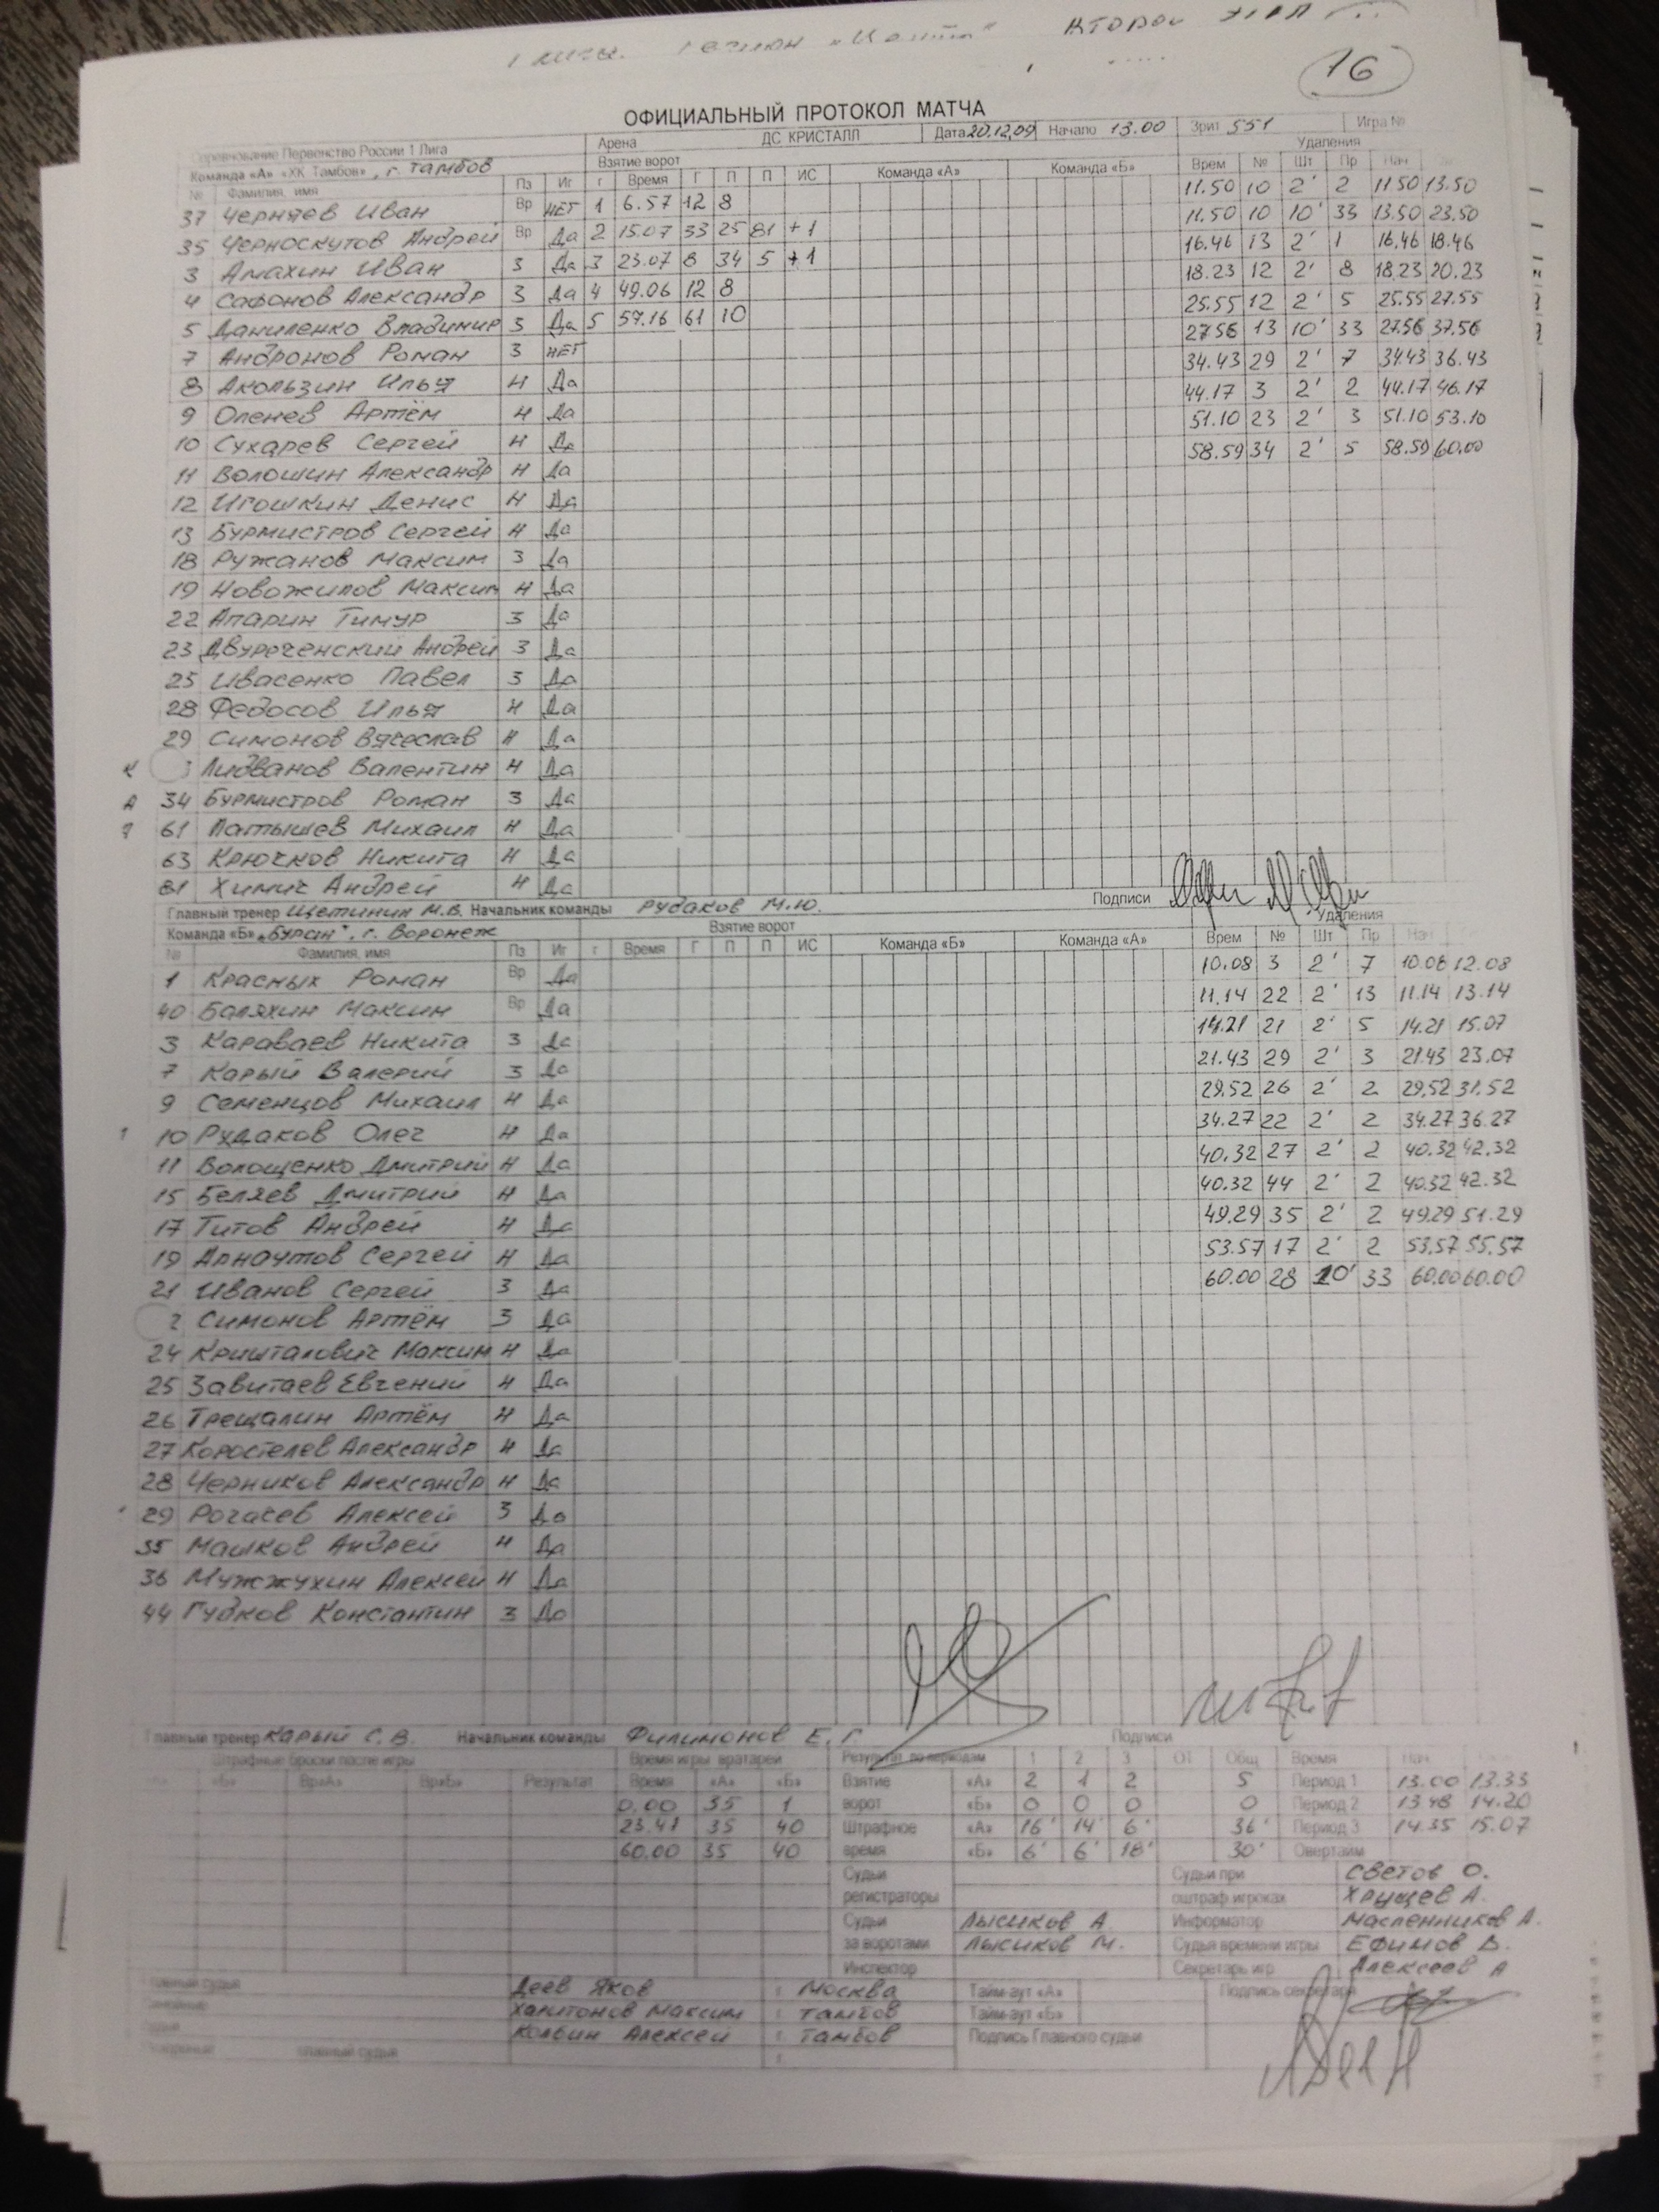 1 лига. Регион второй этап
16
ОФИЦИАЛЬНЫЙ ПРОТОКОЛ МАТЧА
Соревнование Первенство России 1 Лига Арена ДС КРИСТАЛЛ Дата 20.12.09 Начало 13.00 Зрит 551 Игра №
Команда «А» «ХК Тамбов», г. Тамбов Взятие ворот Команда «А» Команда «Б» Удаления
№ Фамилия, имя Пз Иг г Время Г П П ИС Врем № Шт Пр Нач
37 Черняев Иван Вр НЕТ 1 6.57 12 8 11.50 10 2' 2 11.50 13.50
35 Черноскутов Андрей Вр Да 2 15.07 33 25 81 +1 11.50 10 10' 33 13.50 23.50
3 Амахин Иван З Да 3 23.07 8 34 5 +1 16.46 13 2' 1 16.46 18.46
4 Сафонов Александр З Да 4 49.06 12 8 18.23 12 2' 8 18.23 20.23
5 Даниленко Владимир З Да 5 57.16 61 10 25.55 12 2' 5 25.55 27.55
7 Андронов Роман З НЕТ 27.56 13 10' 33 27.56 37.56
8 Акользин Илья Н Да 34.43 29 2' 7 34.43 36.43
9 Оленев Артём Н Да 44.17 3 2' 2 44.17 46.17
10 Сухарев Сергей Н Да 51.10 23 2' 3 51.10 53.10
11 Волошин Александр Н Да 58.59 34 2' 5 58.59 60.00
12 Игошкин Денис Н Да
13 Бурмистров Сергей Н Да
18 Ружанов Максим З Да
19 Новожилов Максим Н Да
22 Апарин Тимур З Да
23 Двуреченский Андрей З Да
25 Ивасенко Павел З Да
28 Федосов Илья Н Да
29 Симонов Вячеслав Н Да
К Лидванов Валентин Н Да
А 34 Бурмистров Роман З Да
61 Латышев Михаил Н Да
63 Крючков Никита Н Да
81 Химич Андрей Н Да
Подписи
Главный тренер Щетинин М.В. Начальник команды Рудаков М.Ю.
Команда «Б» „Буран", г. Воронеж Взятие ворот Команда «Б» Команда «А» Удаления
№ Фамилия, имя Пз Иг г Время Г П П ИС Врем № Шт Пр Нач
1 Красных Роман Вр Да 10.08 3 2' 7 10.08 12.08
40 Баляхин Максим Вр Да 11.14 22 2' 13 11.14 13.14
3 Караваев Никита З Да 14.21 21 2' 5 14.21 15.07
7 Карый Валерий З Да 21.43 29 2' 3 21.43 23.07
9 Семенцов Михаил Н Да 29.52 26 2' 2 29.52 31.52
10 Рудаков Олег Н Да 34.27 22 2' 2 34.27 36.27
11 Волощенко Дмитрий Н Да 40.32 27 2' 2 40.32 42.32
15 Беляев Дмитрий Н Да 40.32 44 2' 2 40.32 42.32
17 Титов Андрей Н Да 49.29 35 2' 2 49.29 51.29
19 Арнаутов Сергей Н Да 53.57 17 2' 2 53.57 55.57
21 Иванов Сергей З Да 60.00 28 10' 33 60.00 60.00
2 Симонов Артём З Да
24 Кришталович Максим Н Да
25 Завитаев Евгений Н Да
26 Трещалин Артём Н Да
27 Коростелев Александр Н Да
28 Черников Александр Н Да
29 Рогачев Алексей З Да
35 Машков Андрей Н Да
36 Мужжухин Алексей Н Да
44 Гудков Константин З Да
Главный тренер Карый С.В. Начальник команды Филимонов Е.Г. Подписи
Штрафные броски после игры Время игры вратарей Результат по периодам 1 2 3 ОТ Общ Время Нач
«Б» Вр«А» Вр«Б» Результат Время «А» «Б» Взятие «А» 2 1 2 5 Период 1 13.00 13.33
0.00 35 1 ворот «Б» 0 0 0 0 Период 2 13.48 14.20
23.47 35 40 Штрафное «А» 16' 14' 6' 36' Период 3 14.35 15.07
60.00 35 40 время «Б» 6' 6' 18' 30' Овертайм
Судьи Судьи при Светов О.
регистраторы оштраф игроках Хрущев А.
Судьи Лысиков А. Информатор Масленников А.
за воротами Лысиков М. Судья времени игры Ефимов В.
Инспектор Секретарь игр Алексеев А
Главный судья Деев Яков г Москва Тайм-аут «А» Подпись секретаря
Харитонов Максим г Тамбов Тайм-аут «Б»
Колбин Алексей г Тамбов Подпись Главного судьи
главный судья г